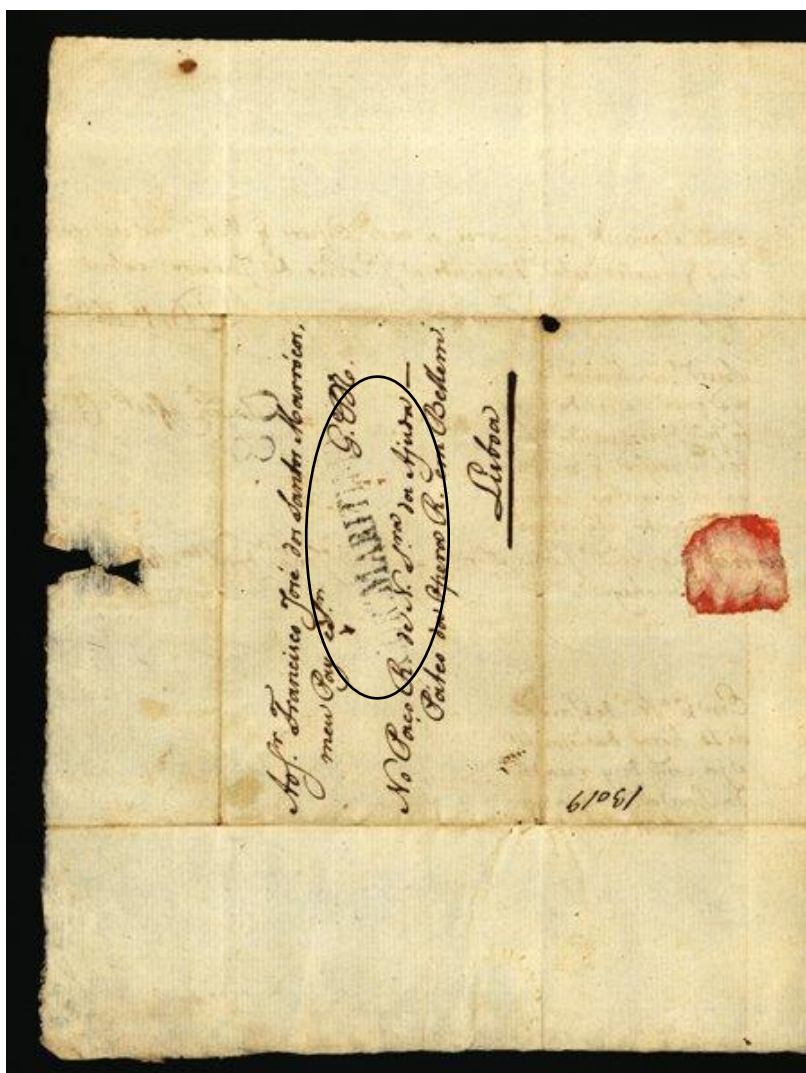 Ao Sr. Francisco José dos Santos Marrócos,
meu Pay e Sr.
G. De.
MARITI
No Paço R. de N. Sra. da Ajuda —
Páteo da Opera R. em Bellem.
Lisboa
13019